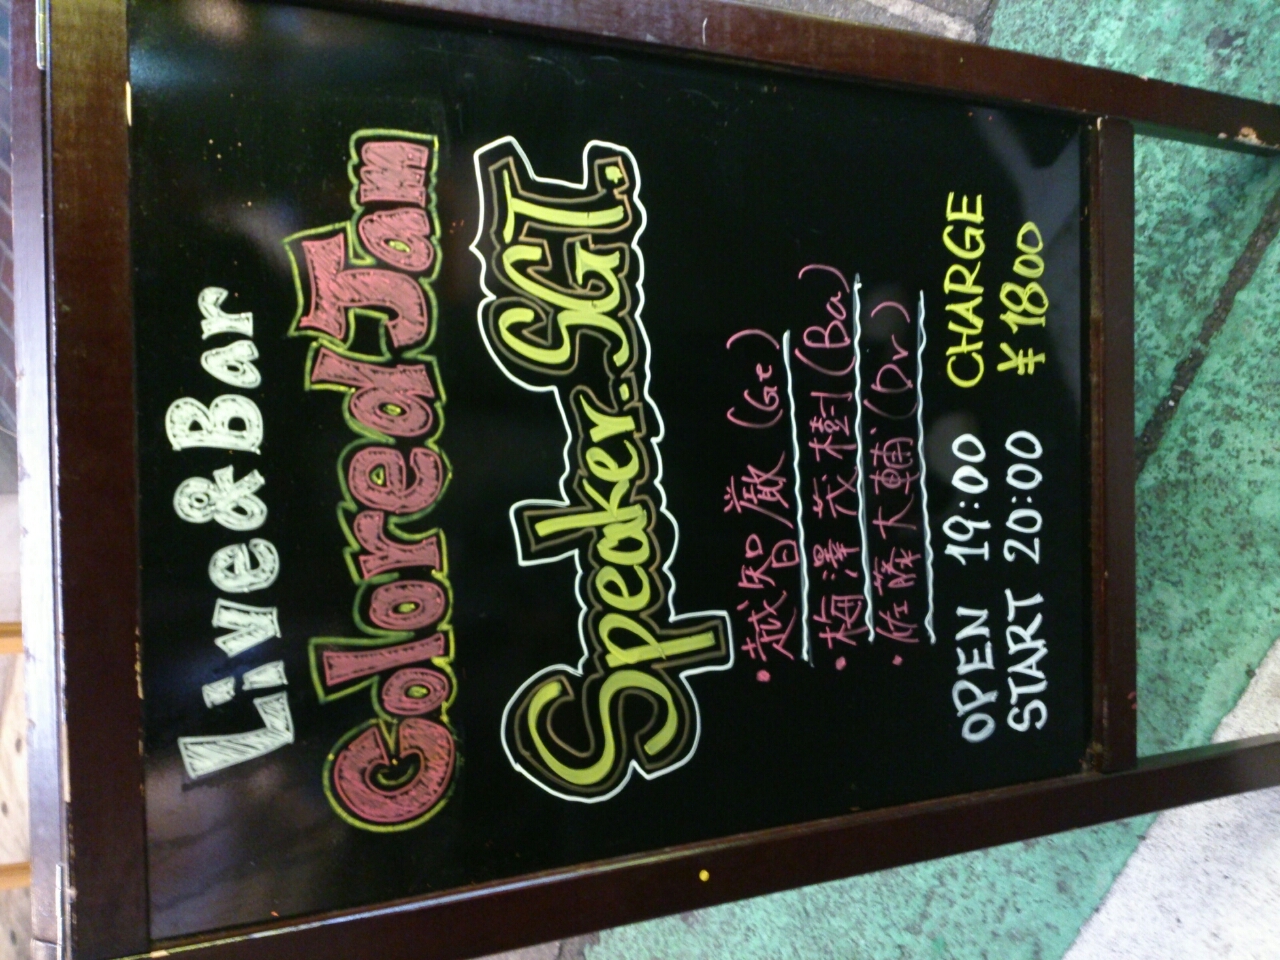 Live & Bar
Colored Jam
Speaker.SGT.
・越智 巌 (Gt)
・梅澤茂樹 (Ba)
・佐藤大輔 (Dr)
OPEN 19:00 CHARGE
START 20:00 ¥1800